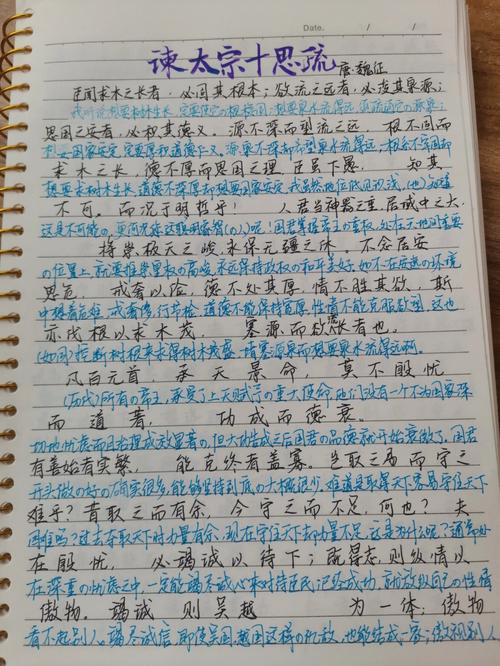 Date.    /    /
谏太宗十思疏 唐·魏征
臣闻求木之长者，必固其根本；欲流之远者，必浚其泉源；
我听说想要树木生长，一定要使它的根稳固；想要泉水流得远，一定要疏通它的源泉；
思国之安者，必积其德义。源不深而望流之远，根不固而
想要国家安定，一定要厚积道德仁义。源泉不深却希望泉水流得远，根系不牢固却
求木之长，德不厚而思国之理，臣虽下愚，知其
想要求树木生长，道德不深厚却想要国家安定，我虽然地位低见识浅，(也)知道
不可，而况于明哲乎！人君当神器之重，居域中之大，
这是不可能的，更何况您这聪明睿智(的)人呢！国君掌握帝王的重权，处在天地间重要
将崇极天之峻，永保无疆之休。不念居安
的位置上，就要推崇皇权的高峻，永远保持政权的和平美好。如不在安逸的环境
思危，戒奢以俭，德不处其厚，情不胜其欲，斯
中想着危难，戒奢侈，行节俭，道德不能保持宽厚，性情不能克服欲望，这也
亦伐根以求木茂，塞源而欲流长者也。
(如同)挖断树根来求得树木茂盛，堵塞源泉而想要泉水流得远啊。
凡百元首，承天景命，莫不殷忧
(历代)所有的帝王，承受了上天赋予的重大使命，他们没有一个不为国家深
而道著，功成而德衰。
切地忧虑而且治理成效显著的，但大功告成之后国君的品德就开始衰微了。国君
有善始者实繁，能克终者盖寡。岂取之易而守之
开头做的好的确实很多，能够坚持到底的大概很少，难道是取得天下容易守住天下
难乎？昔取之而有余，今守之而不足，何也？夫
困难吗？过去夺取天下时力量有余，现在守住天下却力量不足，这是为什么呢？通常处
在殷忧，必竭诚以待下；既得志，则纵情以
在深重的忧虑之中，一定能竭尽诚心来对待臣民，已经成功，就放纵自己的性情
傲物。竭诚则吴越为一体；傲物
看不起别人。竭尽诚信，即使吴国、越国这样的仇敌，也能结成一家；傲视别人